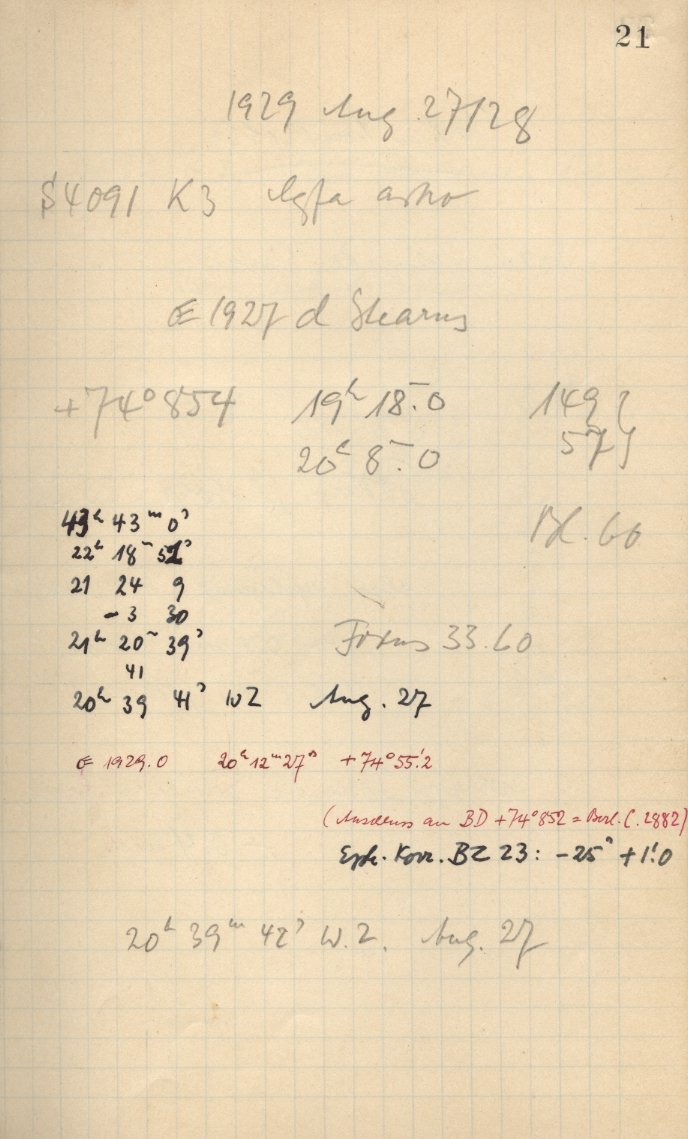 21
1929 Aug. 27/28
S4091 K3 Agfa astro
1927 d Stearns
+74° 854 19ʰ 18ᵐ.0 149
20ʰ 8ᵐ.0 57
43ᵐ 0ˢ
22ʰ 18ᵐ
Bl. 60
21 24 9
- 3 30
21ʰ 20ᵐ 39ˢ
Fokus 33.60
41
20ʰ 39 41ˢ WZ Aug. 27
1929.0 20ʰ 12ᵐ 27ˢ +74° 55!2
(Anschluss an BD +74° 852 = Berl. C. 2882)
Eph. Korr. BZ 23: -25ˢ +1!0
20ʰ 39ᵐ 42ˢ W.Z. Aug. 27